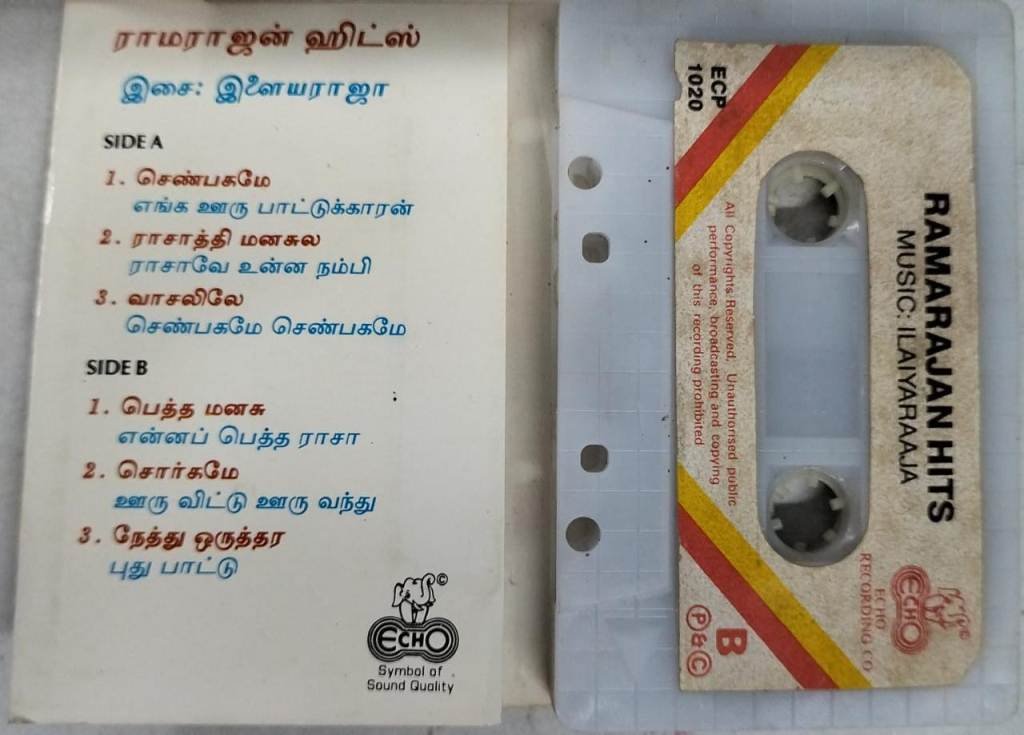 ராமராஜன் ஹிட்ஸ்
இசை: இளையராஜா
SIDE A
1. செண்பகமே
எங்க ஊரு பாட்டுக்காரன்
2. ராசாத்தி மனசுல
ராசாவே உன்ன நம்பி
3. வாசலிலே
செண்பகமே செண்பகமே
SIDE B
1. பெத்த மனசு
என்னப் பெத்த ராசா
2. சொர்கமே
ஊரு விட்டு ஊரு வந்து
3. நேத்து ஒருத்தர
புது பாட்டு
©
ECHO
Symbol of
Sound Quality
RAMARAJAN HITS
MUSIC: ILAIYARAAJA
ECP
1020
All Copyrights Reserved. Unauthorised public
performance, broadcasting and copying
of this recording prohibited
©
ECHO
ECHO
RECORDING CO
B
Ⓟ&©